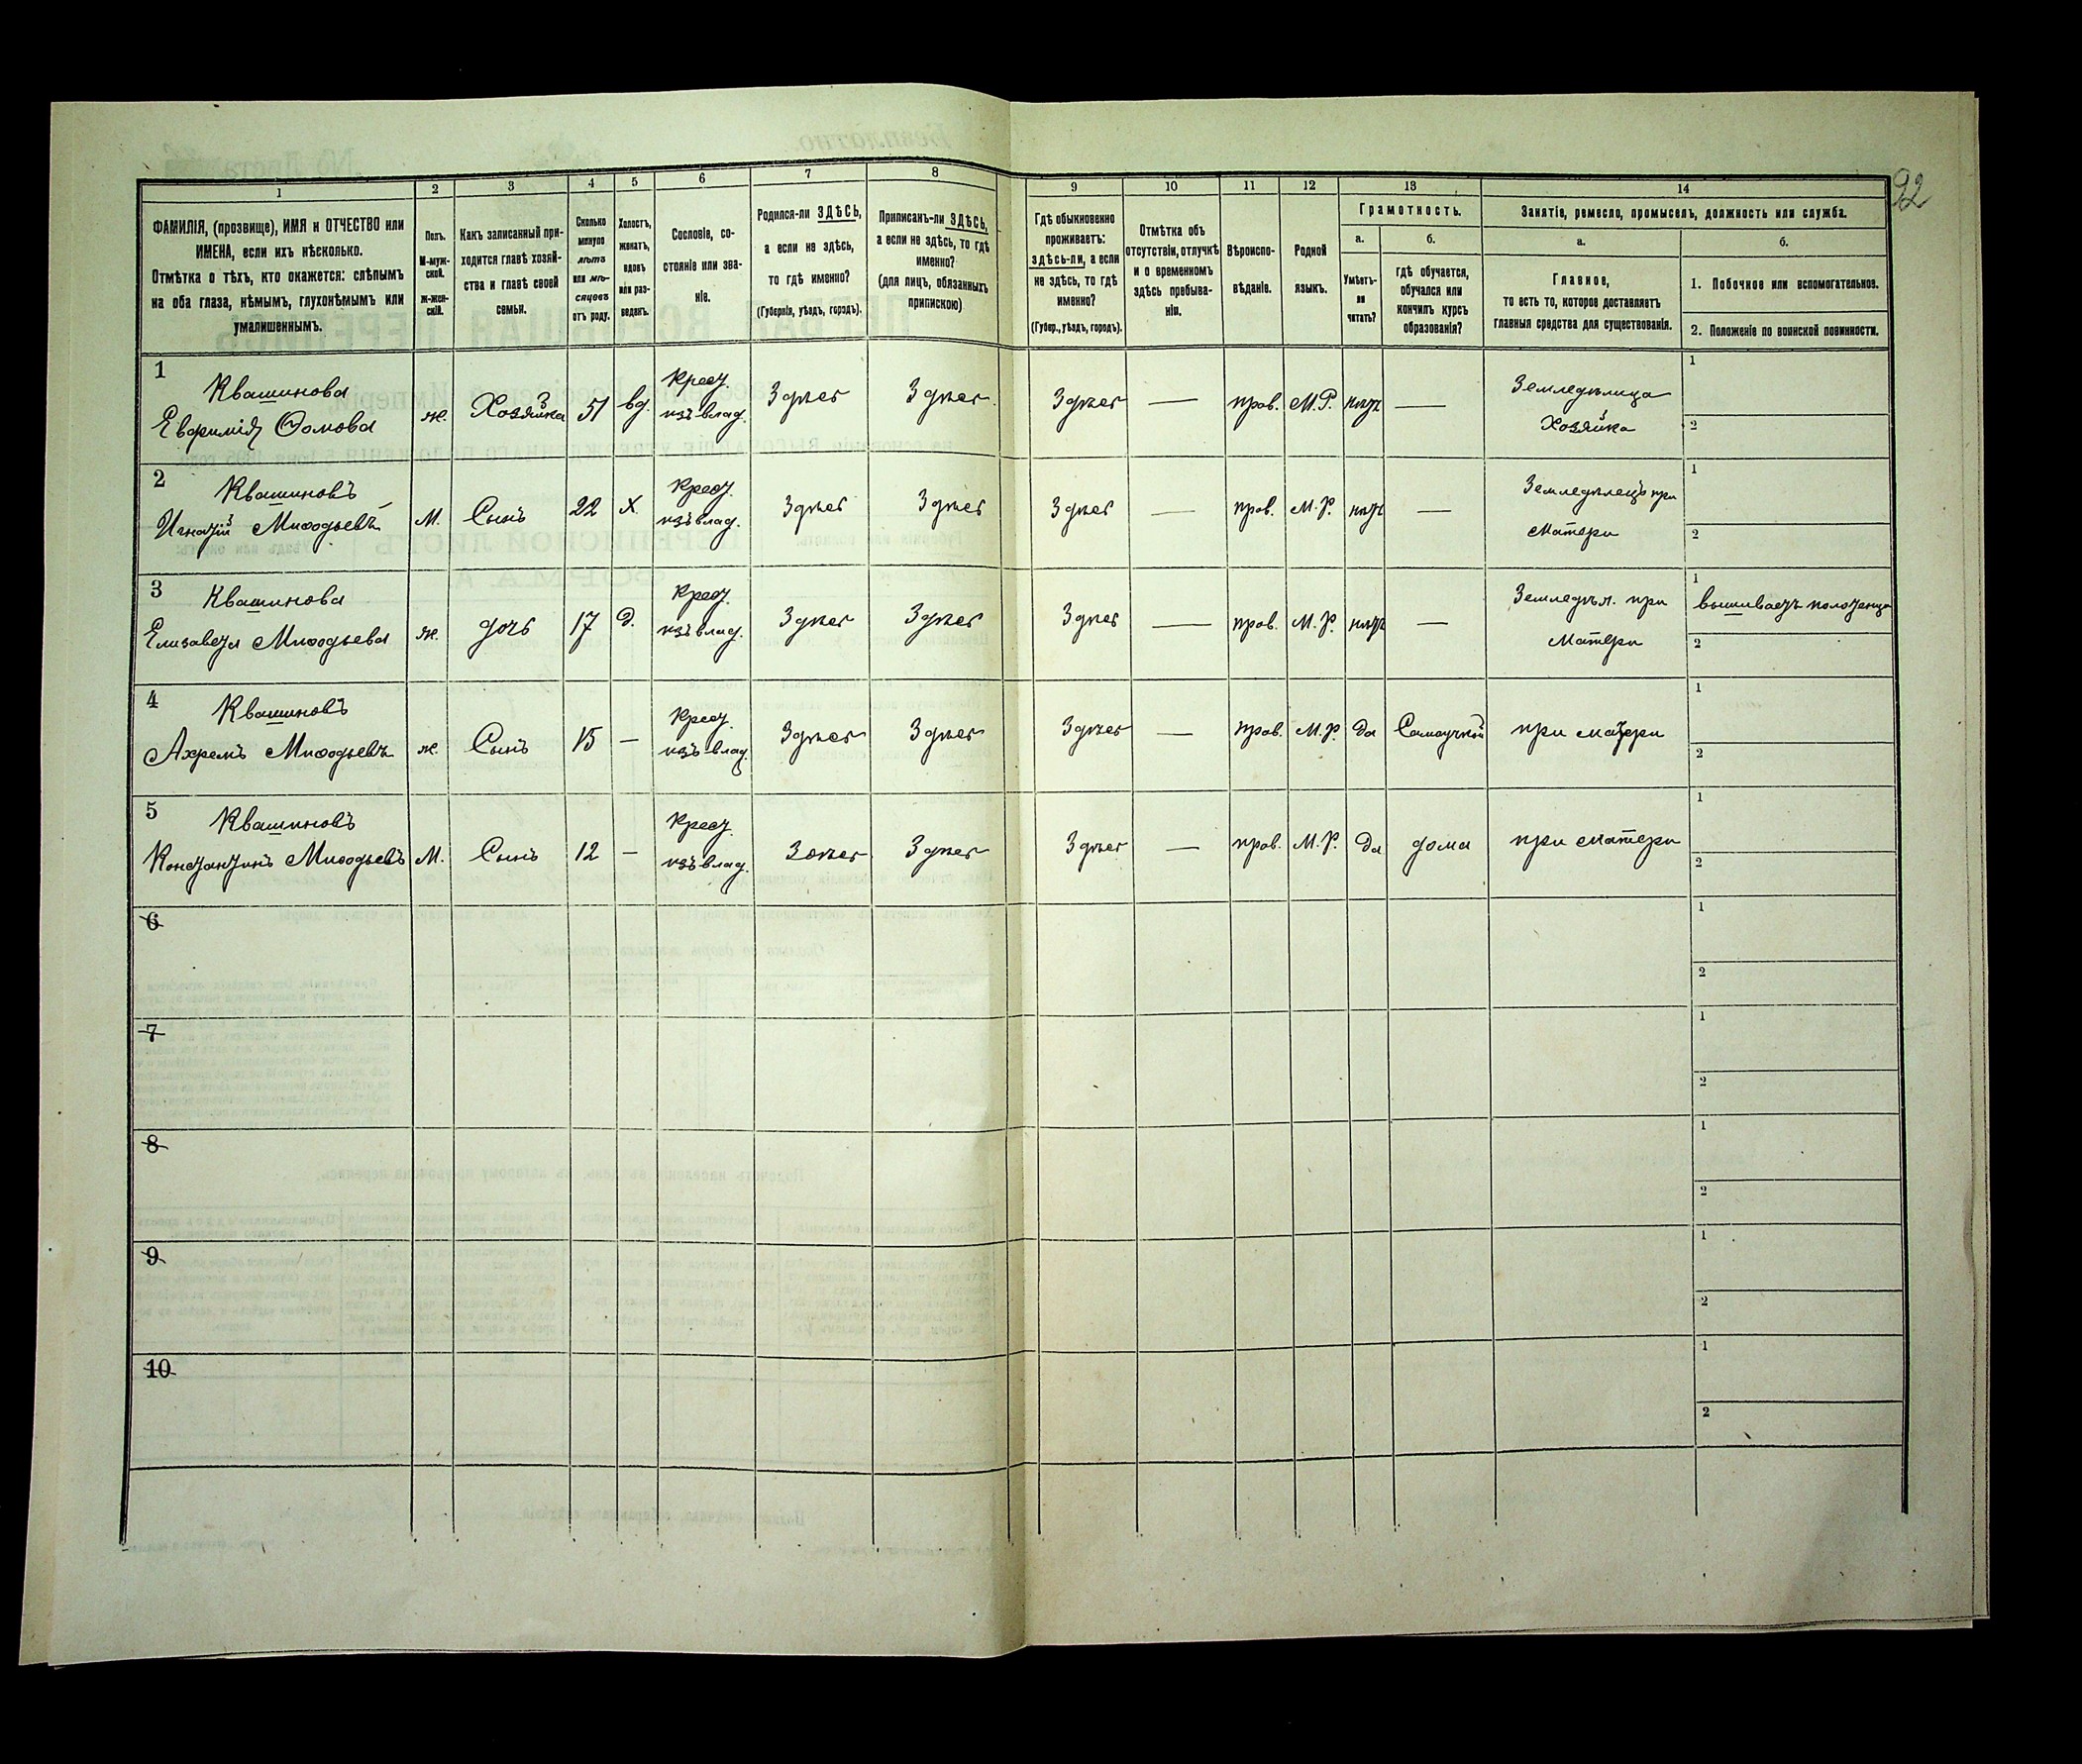 92
1 2 3 4 5 6 7 8 9 10 11 12 13 14
ФАМИЛІЯ, (прозвище), ИМЯ и ОТЧЕСТВО или
ИМЕНА, если ихъ нѣсколько.
Отмѣтка о тѣхъ, кто окажется: слѣпымъ
на оба глаза, нѣмымъ, глухонѣмымъ или
умалишеннымъ.
Полъ.
М-муж-
ской.
ж-жен-
скій.
Какъ записанный при-
ходится главѣ хозяй-
ства и главѣ своей
семьи.
Сколько
минуло
лѣтъ
или мѣ-
сяцевъ
отъ роду.
Холостъ,
женатъ,
вдовъ
или раз-
веденъ.
Сословіе, со-
стояніе или зва-
ніе.
Родился-ли ЗДѢСЬ,
а если не здѣсь,
то гдѣ именно?
(Губернія, уѣздъ, городъ).
Приписанъ-ли ЗДѢСЬ,
а если не здѣсь, то гдѣ
именно?
(для лицъ, обязанныхъ
припискою)
Гдѣ обыкновенно
проживаетъ:
здѣсь-ли, а если
не здѣсь, то гдѣ
именно?
(Губер., уѣздъ, городъ).
Отмѣтка объ
отсутствіи, отлучкѣ
и о временномъ
здѣсь пребыва-
ніи.
Вѣроиспо-
вѣданіе.
Родной
языкъ.
Грамотность.
а.
Умѣетъ-
ли
читать?
б.
гдѣ обучается,
обучался или
кончилъ курсъ
образованія?
Занятіе, ремесло, промыселъ, должность или служба.
а.
Главное,
то есть то, которое доставляетъ
главныя средства для существованія.
б.
1. Побочное или вспомогательное.
2. Положеніе по воинской повинности.
1 Квашинова
Евфимія Ѳомова
ж. Хозяйка 51 вд.
Крест.
изъ влад.
Здѣсь Здѣсь Здѣсь — прав. М.Р. нѣтъ —
Земледѣлица
Хозяйка
1
2
2 Квашиновъ
Игнатій Миѳодьевъ
М. Сынъ 22 Х.
Крест.
изъ влад.
Здѣсь Здѣсь Здѣсь — прав. М.Р. нѣтъ —
Земледѣлецъ при
матери
1
2
3 Квашинова
Елизавета Миѳодьева
ж. дочь 17 д.
Крест.
изъ влад.
Здѣсь Здѣсь Здѣсь — прав. М.Р. нѣтъ —
Земледѣл. при
матери
1 вышиваетъ полотенца
2
4 Квашиновъ
Ахремъ Миѳодьевъ
ж. Сынъ 15 —
Крест.
изъ влад.
Здѣсь Здѣсь Здѣсь — прав. М.Р. да Самоучкой при матери
1
2
5 Квашиновъ
Константинъ Миѳодьевъ
М. Сынъ 12 —
Крест.
изъ влад.
Здѣсь Здѣсь Здѣсь — прав. М.Р. да дома при матери
1
2
6
1
2
7
1
2
8
1
2
9
1
2
10
1
2